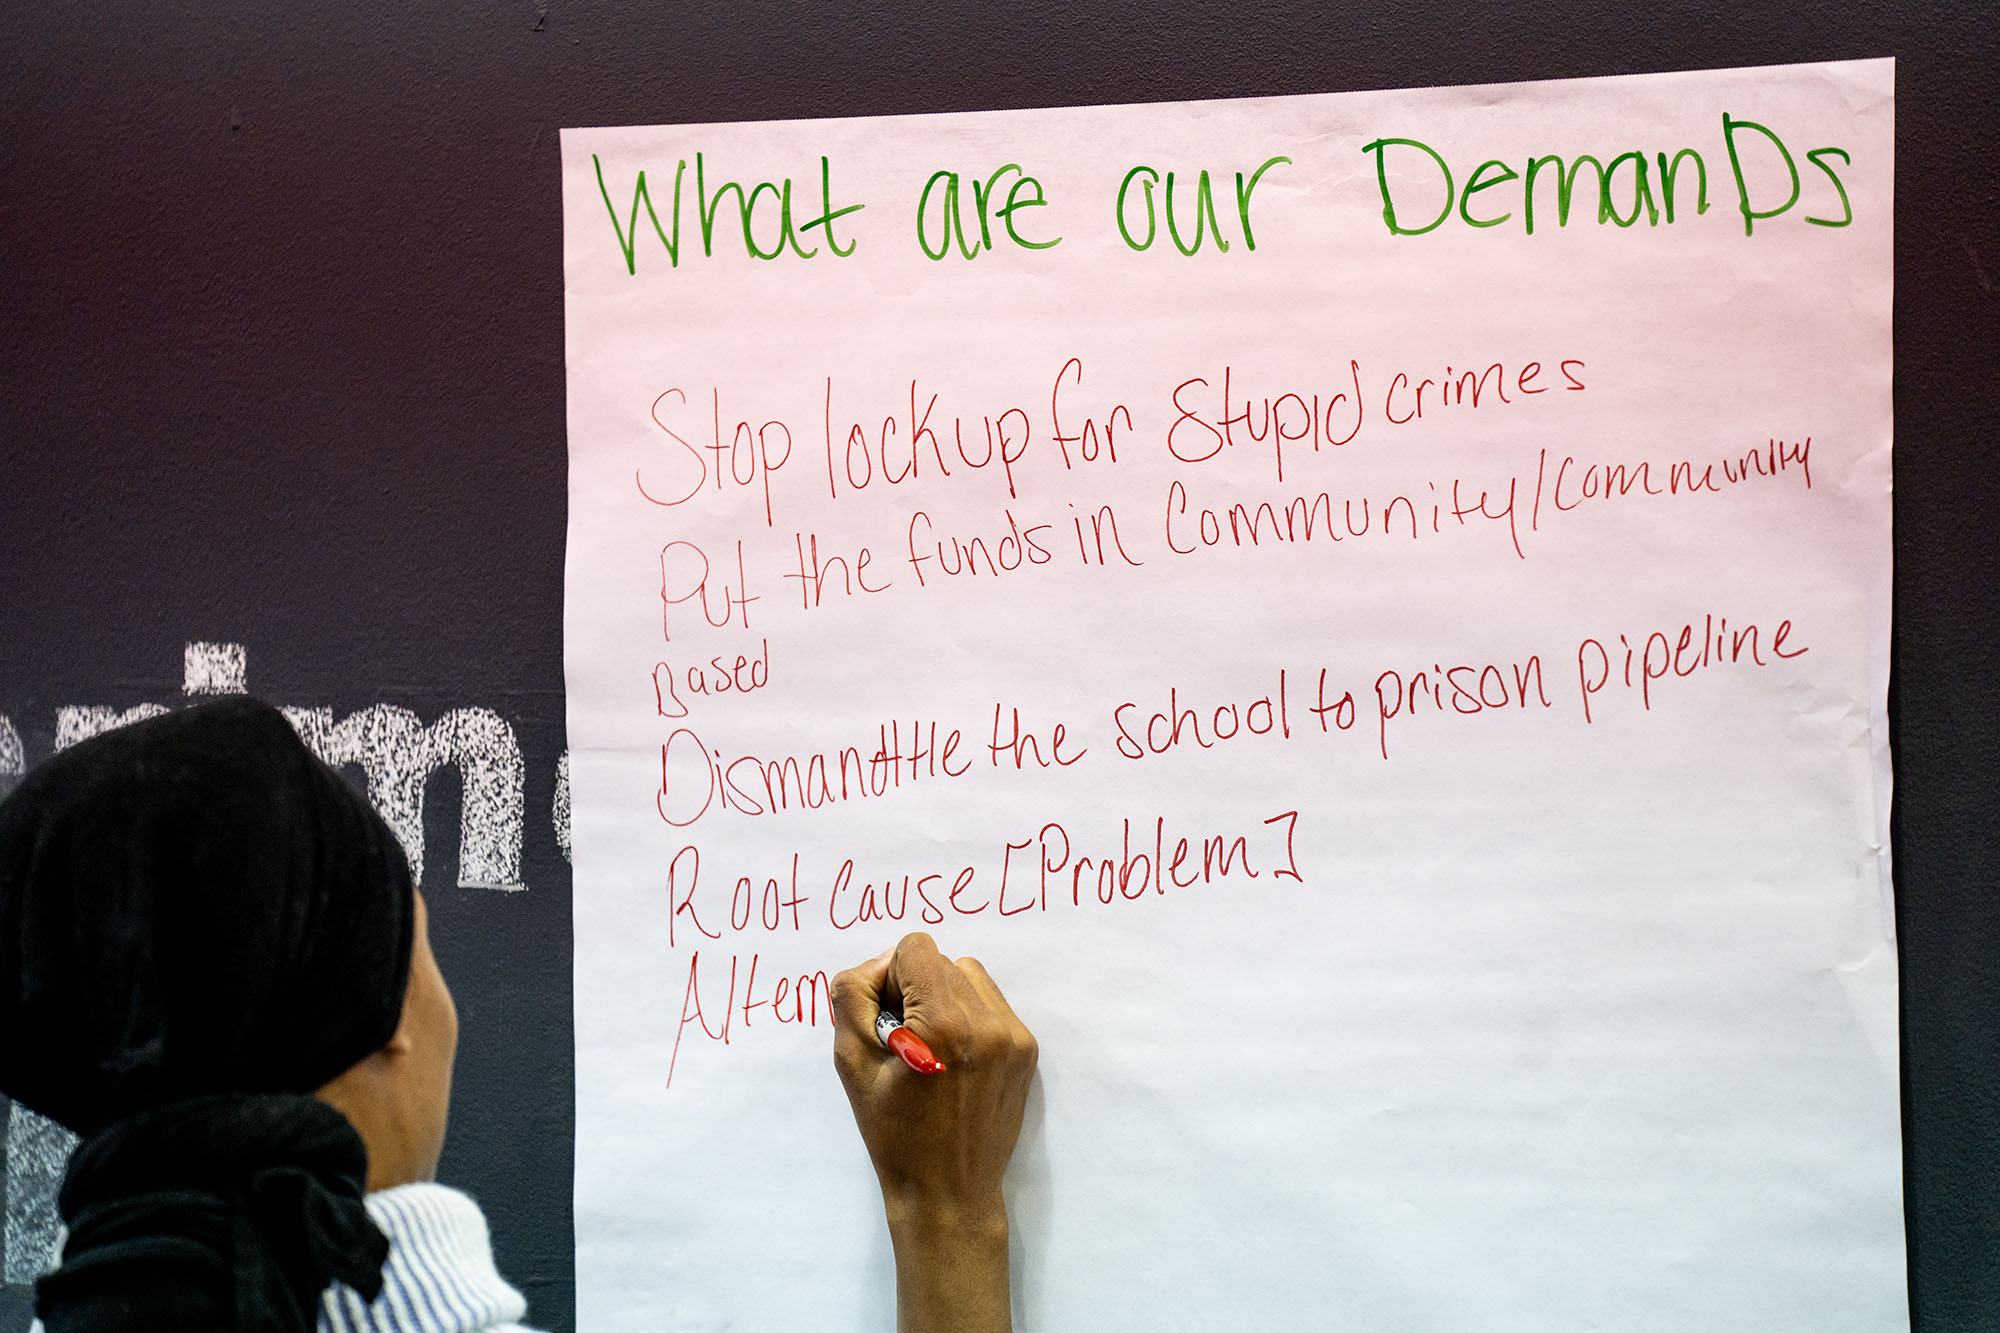 What are our DemanDs
Stop lockup for stupid crimes
Put the funds in Community/Community
Based
Dismandttle the school to prison pipeline
Root cause [Problem]
Altern